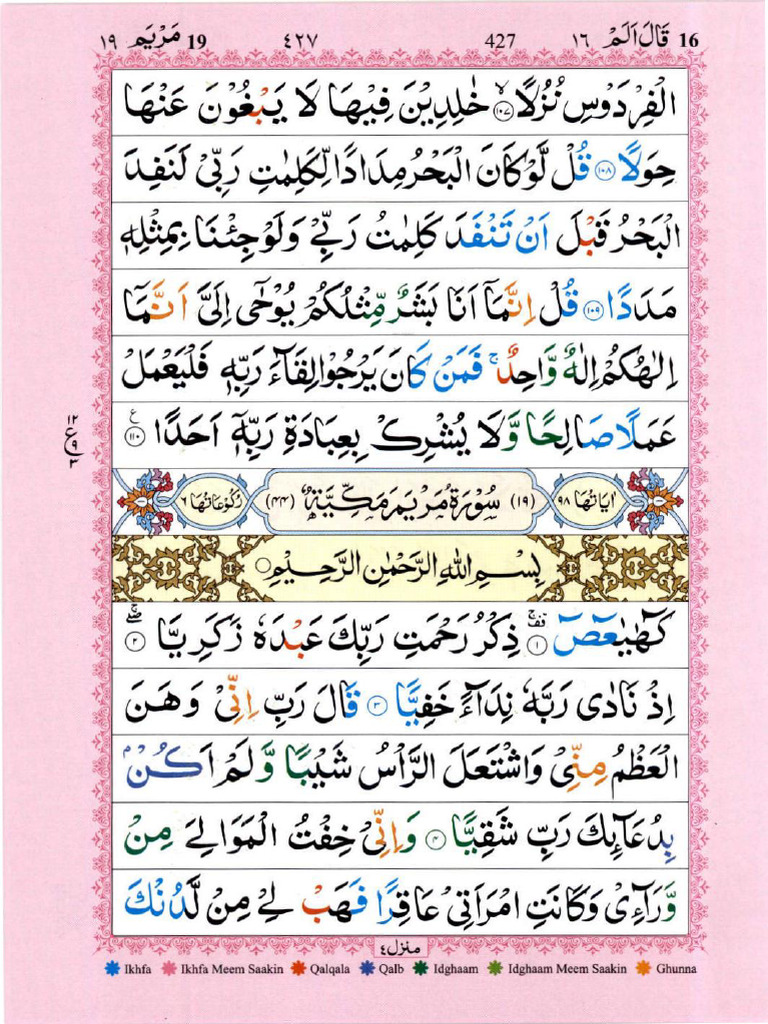 16 قَالَ اَلَمْ ١٦ 427 ٤٢٧ 19 مَرْيَم ١٩
الْفِرْدَوْسِ نُزُلًا ۙ﴿۱۰۷﴾ خٰلِدِيْنَ فِيْهَا لَا يَبْغُوْنَ عَنْهَا
حِوَلًا ﴿۱۰۸﴾ قُلْ لَّوْ كَانَ الْبَحْرُ مِدَادًا لِّكَلِمٰتِ رَبِّىْ لَنَفِدَ
الْبَحْرُ قَبْلَ اَنْ تَنْفَدَ كَلِمٰتُ رَبِّىْ وَلَوْ جِئْنَا بِمِثْلِهٖ
مَدَدًا ﴿۱۰۹﴾ قُلْ اِنَّمَاۤ اَنَا بَشَرٌ مِّثْلُكُمْ يُوْحٰۤى اِلَىَّ اَنَّمَاۤ
اِلٰهُكُمْ اِلٰهٌ وَّاحِدٌ ۚ فَمَنْ كَانَ يَرْجُوْا لِقَآءَ رَبِّهٖ فَلْيَعْمَلْ
عَمَلًا صَالِحًا وَّلَا يُشْرِكْ بِعِبَادَةِ رَبِّهٖۤ اَحَدًا ﴿۱۱۰﴾ ع
١٢
ع ٩
٣
اٰيَاتُهَا ٩٨ (١٩) سُوْرَةُ مَرْيَمَ مَكِّيَّةٌ (٤٤) رُكُوْعَاتُهَا ٦
بِسْمِ اللهِ الرَّحْمٰنِ الرَّحِيْمِ ○
كٓهٰيٰعٓصٓ ﴿۱﴾ ذِكْرُ رَحْمَتِ رَبِّكَ عَبْدَهٗ زَكَرِيَّا ﴿۲﴾
اِذْ نَادٰى رَبَّهٗ نِدَآءً خَفِيًّا ﴿۳﴾ قَالَ رَبِّ اِنِّىْ وَهَنَ
الْعَظْمُ مِنِّىْ وَاشْتَعَلَ الرَّاْسُ شَيْبًا وَّلَمْ اَكُنْۢ
بِدُعَآئِكَ رَبِّ شَقِيًّا ﴿۴﴾ وَاِنِّىْ خِفْتُ الْمَوَالِىَ مِنْ
وَّرَآءِىْ وَكَانَتِ امْرَاَتِىْ عَاقِرًا فَهَبْ لِىْ مِنْ لَّدُنْكَ
منزل ٤
Ikhfa Ikhfa Meem Saakin Qalqala Qalb Idghaam Idghaam Meem Saakin Ghunna